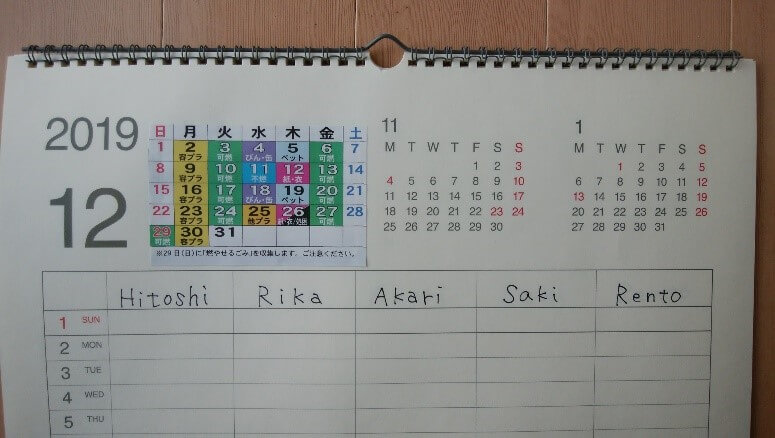 2019
12
日 月 火 水 木 金 土
1 2 3 4 5 6 7
容プラ 可燃 びん・缶 ペット 可燃
8 9 10 11 12 13 14
容プラ 可燃 不燃 紙・衣 可燃
15 16 17 18 19 20 21
容プラ 可燃 びん・缶 ペット 可燃
22 23 24 25 26 27 28
容プラ 可燃 他プラ 可燃
29 30 31
可燃 容プラ
※29日(日)に「燃やせるごみ」を収集します。ご注意ください。
11
M T W T F S S
1 2 3
4 5 6 7 8 9 10
11 12 13 14 15 16 17
18 19 20 21 22 23 24
25 26 27 28 29 30
1
M T W T F S S
1 2 3 4 5
6 7 8 9 10 11 12
13 14 15 16 17 18 19
20 21 22 23 24 25 26
27 28 29 30 31
Hitoshi Rika Akari Saki Rento
1 SUN
2 MON
3 TUE
4 WED
5 THU